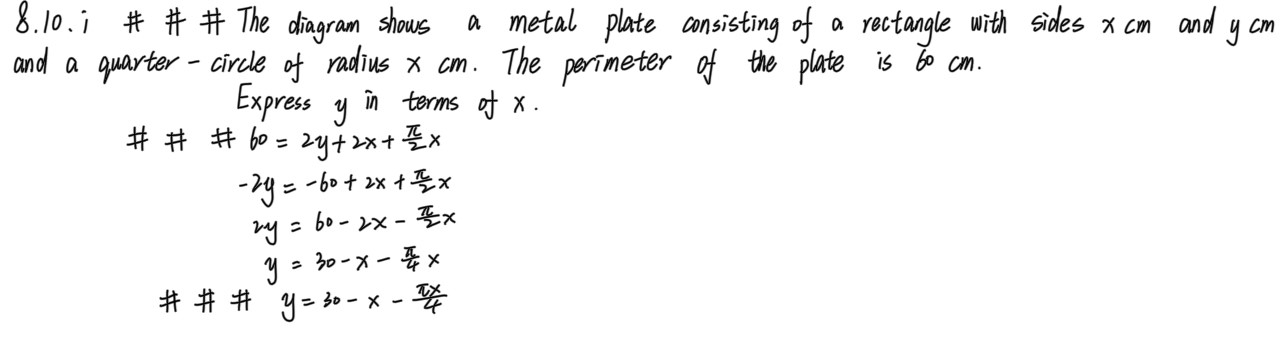 8.10.i # # # The diagram shows a metal plate consisting of a rectangle with sides x cm and y cm
and a quarter-circle of radius x cm. The perimeter of the plate is 60 cm.
Express y in terms of x.
# # # 60 = 2y + 2x + π/2 x
-2y = -60 + 2x + π/2 x
2y = 60 - 2x - π/2 x
y = 30 - x - π/4 x
# # # y = 30 - x - πx/4